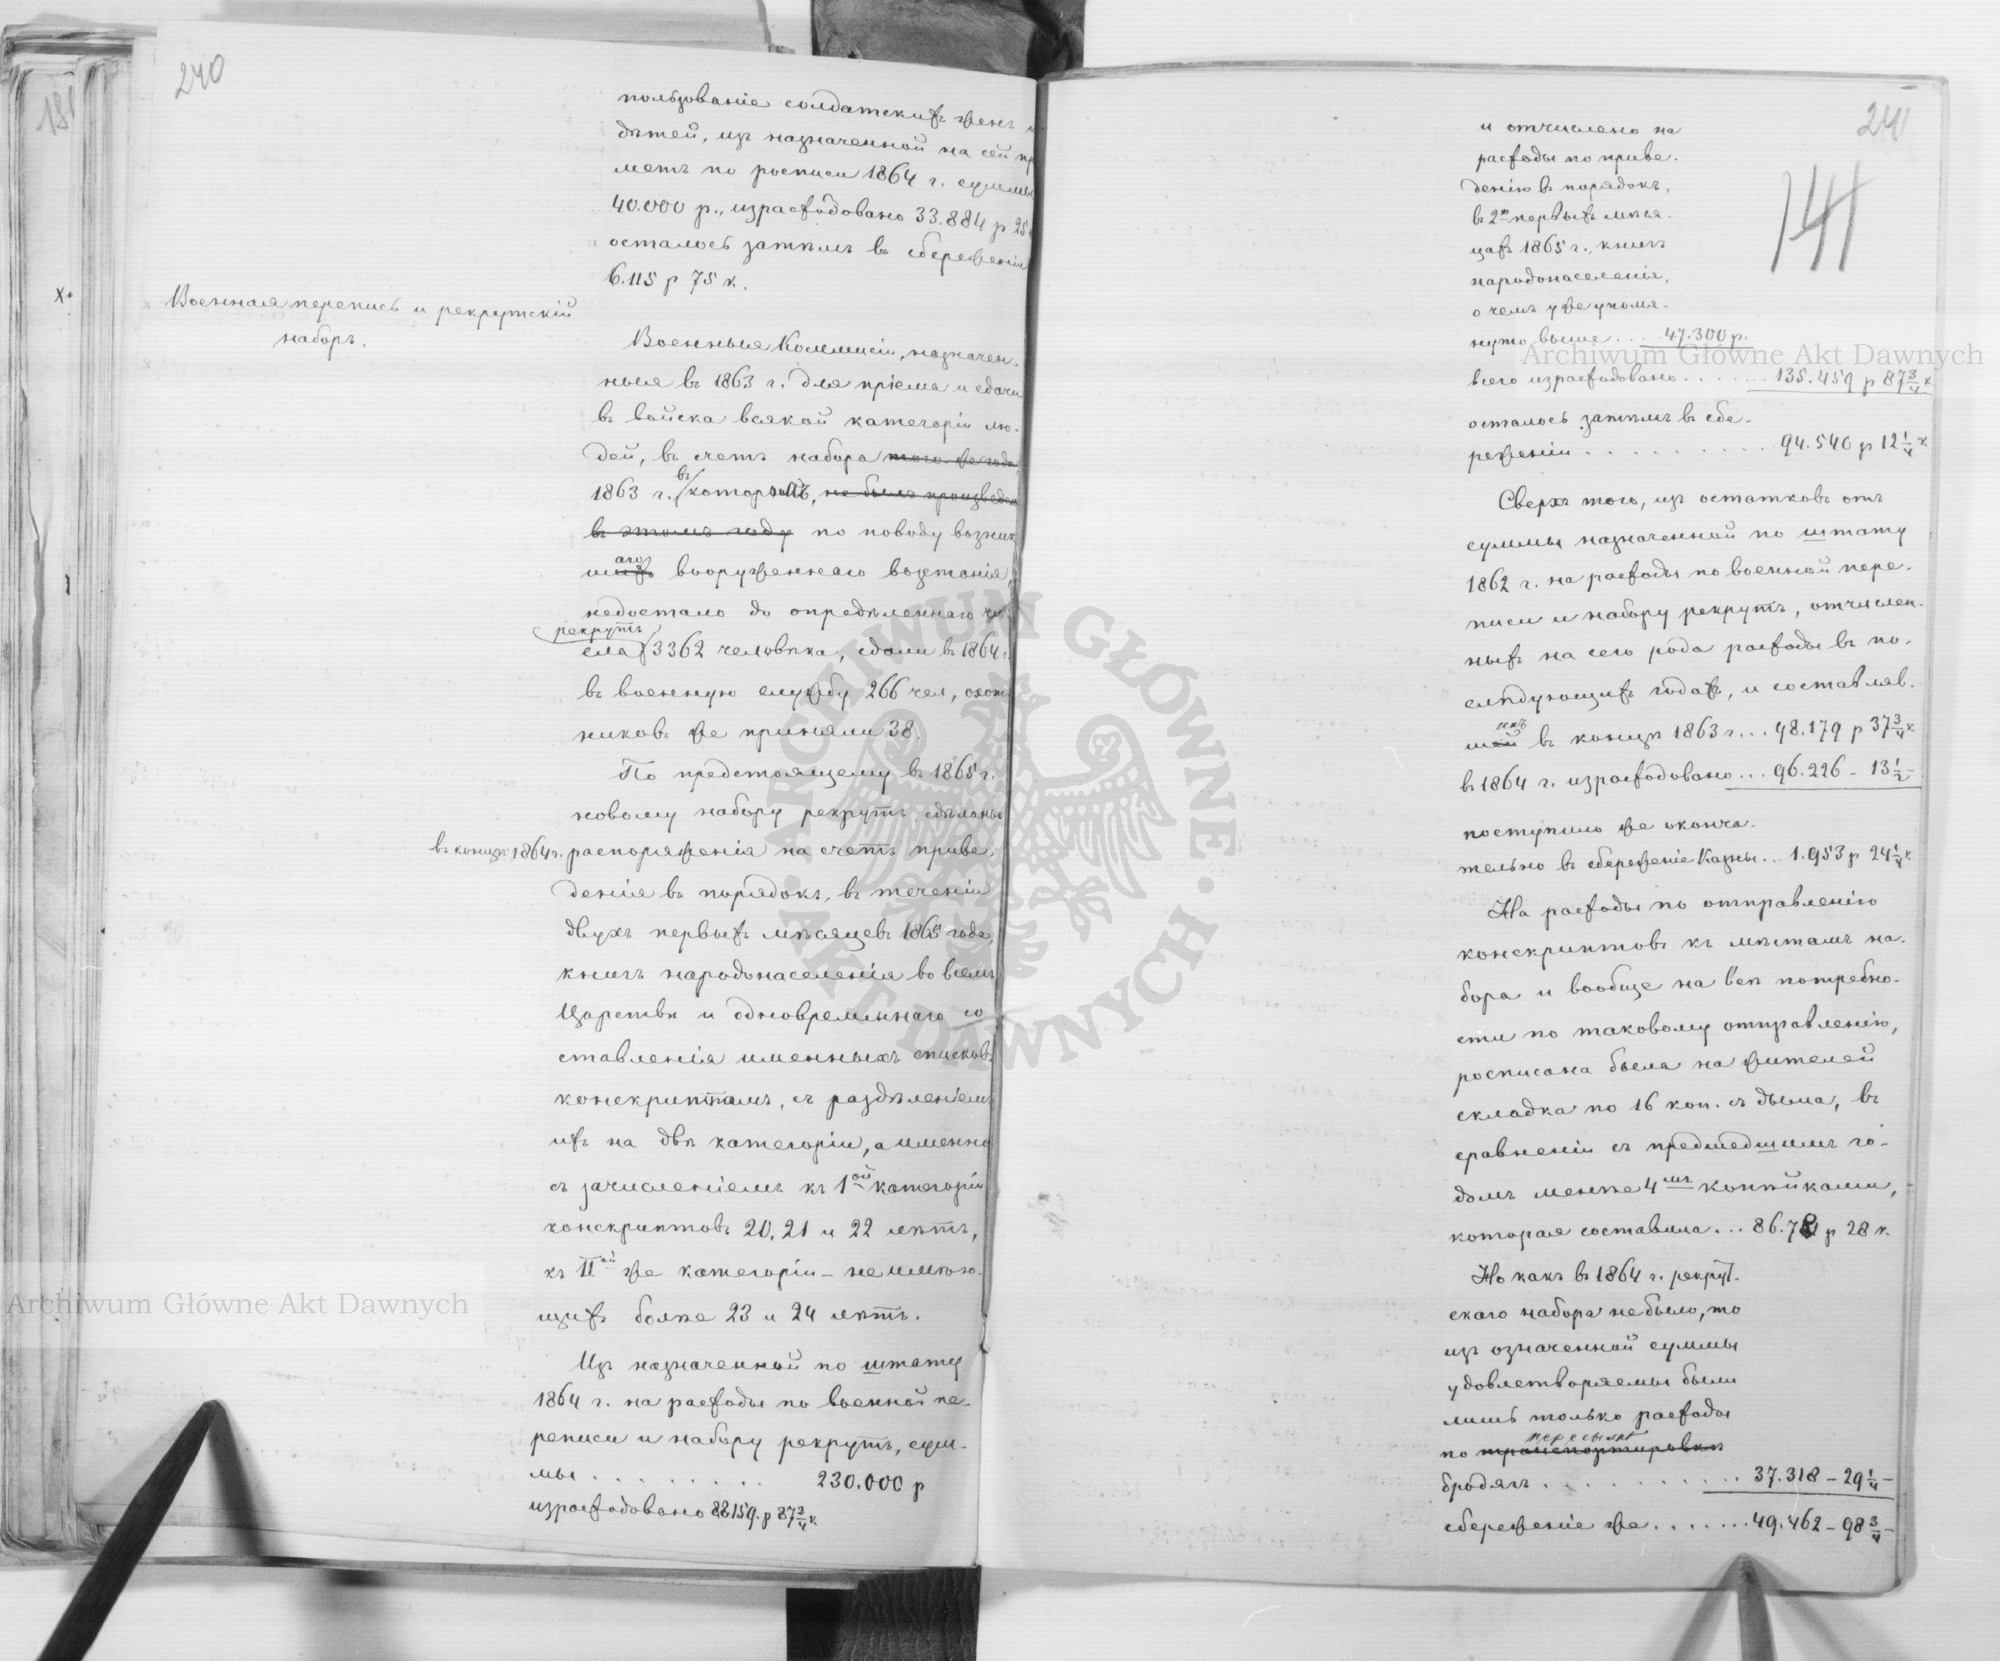 240
181
пользованіе солдатскихъ женъ и
дѣтей, изъ назначенной на сей пр
метъ по росписи 1864 г. суммы
40.000 р., израсходовано 33.884 р 25
осталось затѣмъ въ сбереженіи
6.115 р 75 к.
Военная перепись и рекрутскій
наборъ.
Военныя Коммисіи, назначен-
ныя въ 1863 г. для пріема и сдачи
въ войска всякой категоріи лю-
дей, въ счетъ набора того же года
1863 г. въ которомъ, не былъ произведен
въ этомъ году по поводу возник
шаго вооруженнаго возстанія,
недостало до опредѣленнаго чи
рекрутъ
сла 3362 человѣка, сдали въ 1864 г.
въ военную службу 266 чел, охот
никовъ же приняли 38.
По предстоящему въ 1865 г.
новому набору рекрутъ, сдѣланы
въ концѣ 1864 г. распоряженія на счетъ приве
денія въ порядокъ, въ теченіи
двухъ первыхъ мѣсяцевъ 1865 года,
книгъ народонаселенія во всемъ
Царствѣ и одновременнаго со
ставленія именныхъ списковъ
конскриптамъ, съ раздѣленіемъ
ихъ на двѣ категоріи, а именно
съ зачисленіемъ къ 1ой категоріи
конскриптовъ 20, 21 и 22 лѣтъ,
къ IIой же категоріи - не имѣю-
щихъ болѣе 23 и 24 лѣтъ.
Изъ назначенной по штату
1864 г. на расходы по военной пе-
реписи и набору рекрутъ, сум-
мы . . . . . . . . 230.000 р
израсходовано 88159. р 87 3/4 к
241
141
и отчислено на
расходы по приве-
денію въ порядокъ,
въ 2хъ первыхъ мѣся-
цахъ 1865 г., книгъ
народонаселенія,
о чемъ уже упомя-
нуто выше . . . 47.300 р.
всего израсходовано . . . . . . . 135.459 р 87 3/4 к
осталось затѣмъ въ сбе-
реженіи . . . . . . . . . . 94.540 р 12 1/4 к
Сверхъ того, изъ остатковъ отъ
суммы назначенной по штату
1862 г. на расходы по военной пере-
писи и набору рекрутъ, отчислен-
ныхъ на сего рода расходы въ по-
слѣдующихъ годахъ, и составляв-
шихъ въ концѣ 1863 г. . . 98.179 р 37 3/4 к
въ 1864 г. израсходовано . . . 96.226 - 13 1/2 -
поступило же оконча-
тельно въ сбереженіе Казны . . . 1.953 р 24 1/4 к
На расходы по отправленію
конскриптовъ къ мѣстамъ на-
бора и вообще на всѣ потребно-
сти по таковому отправленію,
росписана была на жителей
складка по 16 коп. съ дыма, въ
сравненіи съ предшедшимъ го-
домъ менѣе 4мя копѣйками,
которая составила . . . 86.781 р 28 к.
Но какъ въ 1864 г. рекрут-
скаго набора не было, то
изъ означенной суммы
удовлетворяемы были
лишь только расходы
пересылкѣ
по транспортировкѣ
бродягъ . . . . . . . . . . . 37.318 - 29 1/4 -
сбереженіе же . . . . . . . 49.462 - 98 3/4 -
Archiwum Główne Akt Dawnych
Archiwum Główne Akt Dawnych
ARCHIWUM GŁÓWNE AKT DAWNYCH